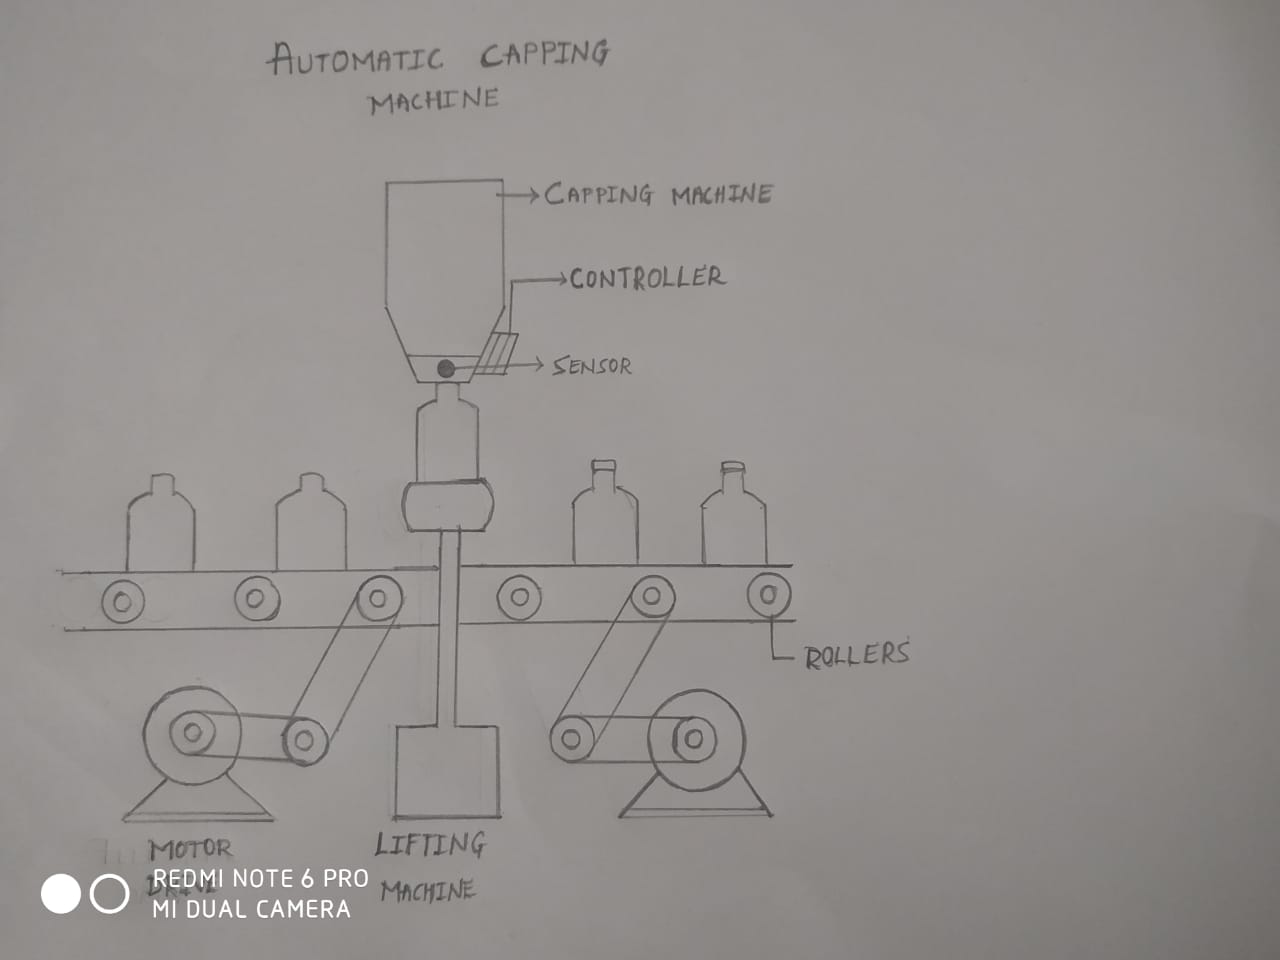 AUTOMATIC CAPPING
MACHINE
CAPPING MACHINE
CONTROLLER
SENSOR
ROLLERS
MOTOR
DRIVE
LIFTING
MACHINE
REDMI NOTE 6 PRO
MI DUAL CAMERA